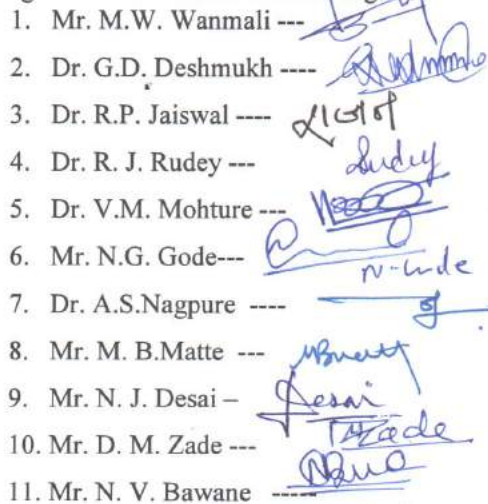 1. Mr. M.W. Wanmali ---
2. Dr. G.D. Deshmukh ----
3. Dr. R.P. Jaiswal ----
4. Dr. R. J. Rudey --- Rudey
5. Dr. V.M. Mohture ---
6. Mr. N.G. Gode---
7. Dr. A.S.Nagpure ----
8. Mr. M. B.Matte ---
9. Mr. N. J. Desai – Desai
10. Mr. D. M. Zade --- Zade
11. Mr. N. V. Bawane -----